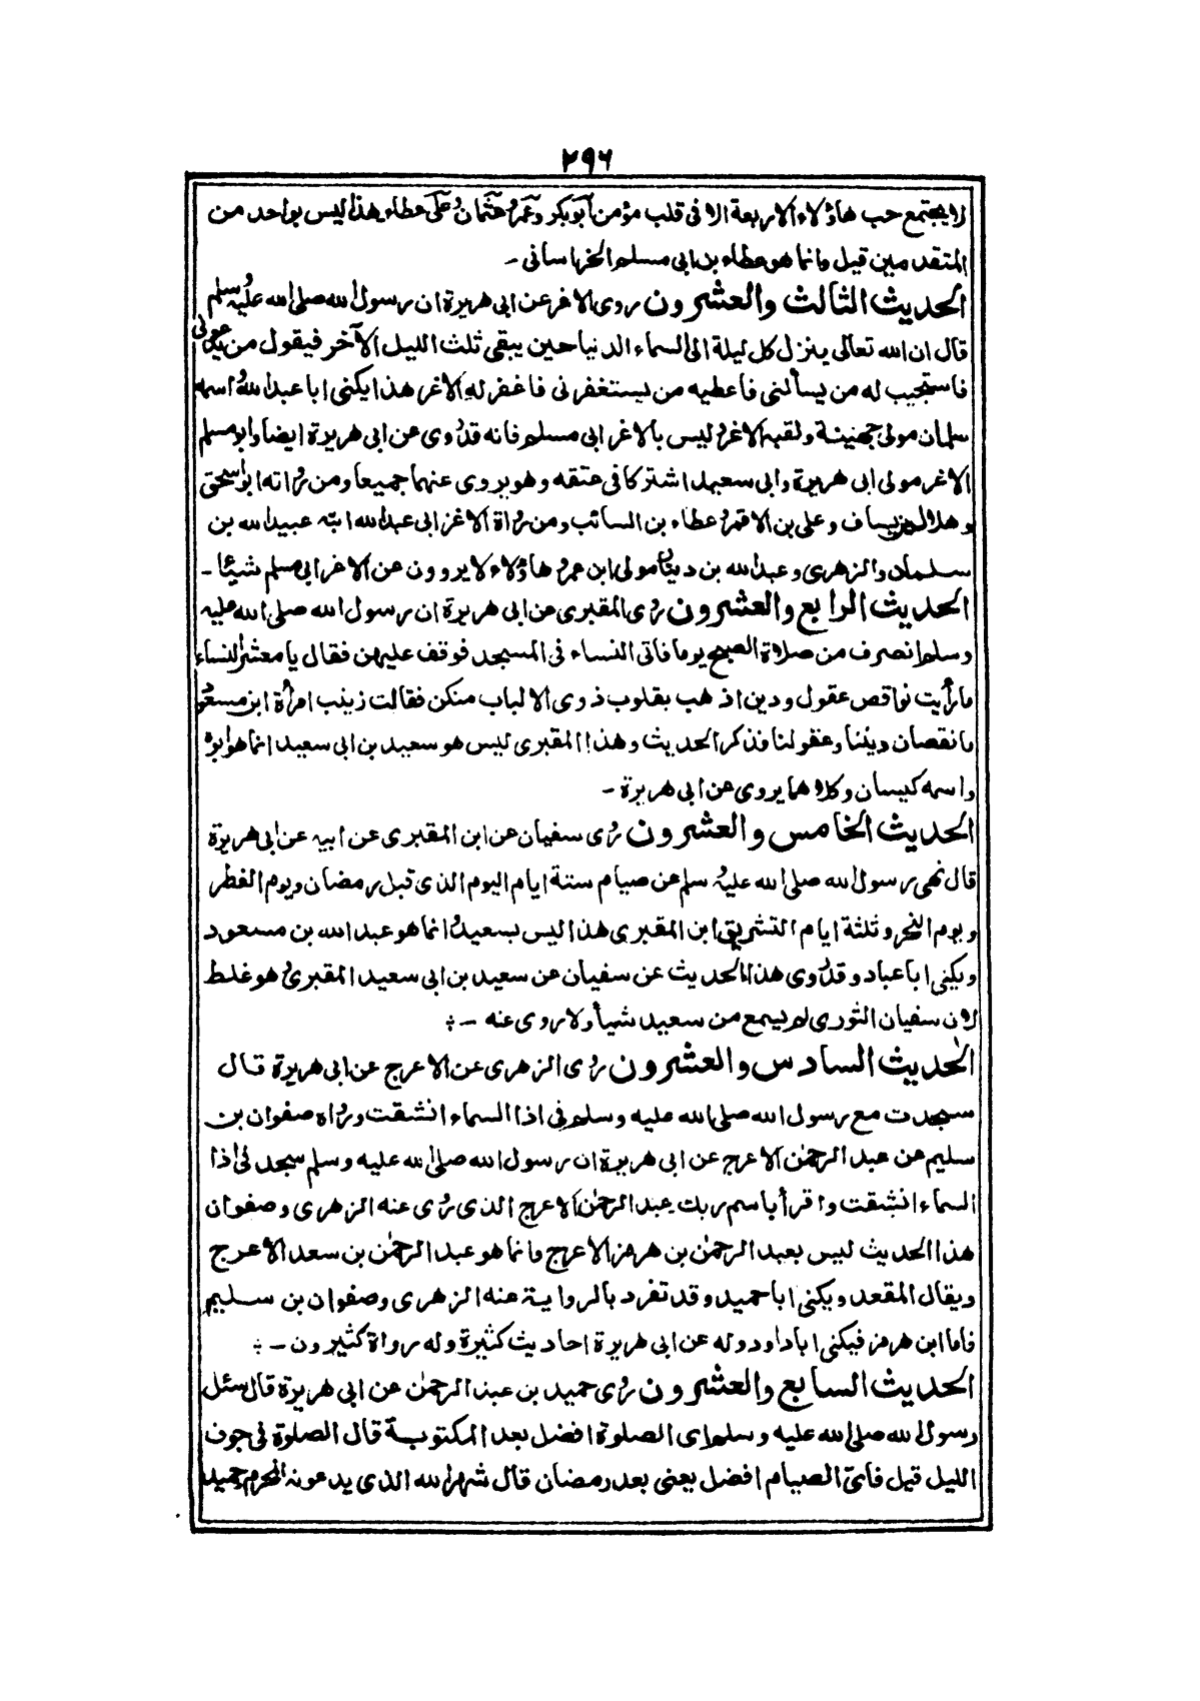 ٢٩٦
لا يجتمع حب هاؤلاء الاربعة الا فى قلب مؤمن ابوبكر وعمر وعثمان وعلى عطاء هذا ليس بواحد من
المتقدمين قيل وانما هو عطاء بن ابى مسلم الخراسانى -
الحديث الثالث والعشرون روى الاغر عن ابى هريرة ان رسول الله صلى الله عليه وسلم
قال ان الله تعالى ينزل كل ليلة الى السماء الدنيا حين يبقى ثلث الليل الآخر فيقول من يدعونى
فاستجيب له من يسألنى فاعطيه من يستغفرنى فاغفر له الاغر هذا يكنى ابا عبد الله واسمه
سلمان مولى جهينة ولقبه الاغر وليس بالاغر ابى مسلم فانه قد روى عن ابى هريرة ايضا وابو مسلم
الاغر مولى ابى هريرة وابى سعيد اشتركا فى عتقه وهو يروى عنهما جميعا ومن رواته ابو اسحق
وهلال بن يساف وعلى بن الاقمر وعطاء بن السائب ومن رواة الاغر ابى عبد الله ابنه عبيد الله بن
سلمان والزهرى وعبد الله بن دينار مولى ابن عمر وهاؤلاء لا يروون عن الاغر ابى مسلم شيئا -
الحديث الرابع والعشرون روى المقبرى عن ابى هريرة ان رسول الله صلى الله عليه
وسلم انصرف من صلاة الصبح يوما فاتى النساء فى المسجد فوقف عليهن فقال يا معشر النساء
ما رأيت نواقص عقول ودين اذهب بقلوب ذوى الالباب منكن فقالت زينب امرأة ابن مسعود
ما نقصان ديننا وعقولنا فذكر الحديث وهذا المقبرى ليس هو سعيد بن ابى سعيد انما هو ابوه
واسمه كيسان وكلاهما يروى عن ابى هريرة -
الحديث الخامس والعشرون روى سفيان عن ابن المقبرى عن ابيه عن ابى هريرة
قال نهى رسول الله صلى الله عليه وسلم عن صيام ستة ايام اليوم الذى قبل رمضان ويوم الفطر
ويوم النحر وثلثة ايام التشريق ابن المقبرى هذا ليس بسعيد وانما هو عبد الله بن مسعود
ويكنى ابا عباد وقد روى هذا الحديث عن سفيان عن سعيد بن ابى سعيد المقبرى وهو غلط
لان سفيان الثورى لم يسمع من سعيد شيأ ولا روى عنه - ÷
الحديث السادس والعشرون روى الزهرى عن الاعرج عن ابى هريرة قال
سجدت مع رسول الله صلى الله عليه وسلم فى اذا السماء انشقت ورواه صفوان بن
سليم عن عبد الرحمٰن الاعرج عن ابى هريرة ان رسول الله صلى الله عليه وسلم سجد فى اذا
السماء انشقت واقرأ باسم ربك عبد الرحمٰن الاعرج الذى روى عنه الزهرى وصفوان
هذا الحديث ليس بعبد الرحمٰن بن هرمز الاعرج وانما هو عبد الرحمٰن بن سعد الاعرج
ويقال المقعد ويكنى ابا حميد وقد تفرد بالرواية عنه الزهرى وصفوان بن سليم
فاما ابن هرمز فيكنى ابا داود وله عن ابى هريرة احاديث كثيرة وله رواة كثيرون - ÷
الحديث السابع والعشرون روى حميد بن عبد الرحمٰن عن ابى هريرة قال سئل
رسول الله صلى الله عليه وسلم اى الصلوة افضل بعد المكتوبة قال الصلوة فى جوف
الليل قيل فاى الصيام افضل يعنى بعد رمضان قال شهر الله الذى يدعونه المحرم حميد